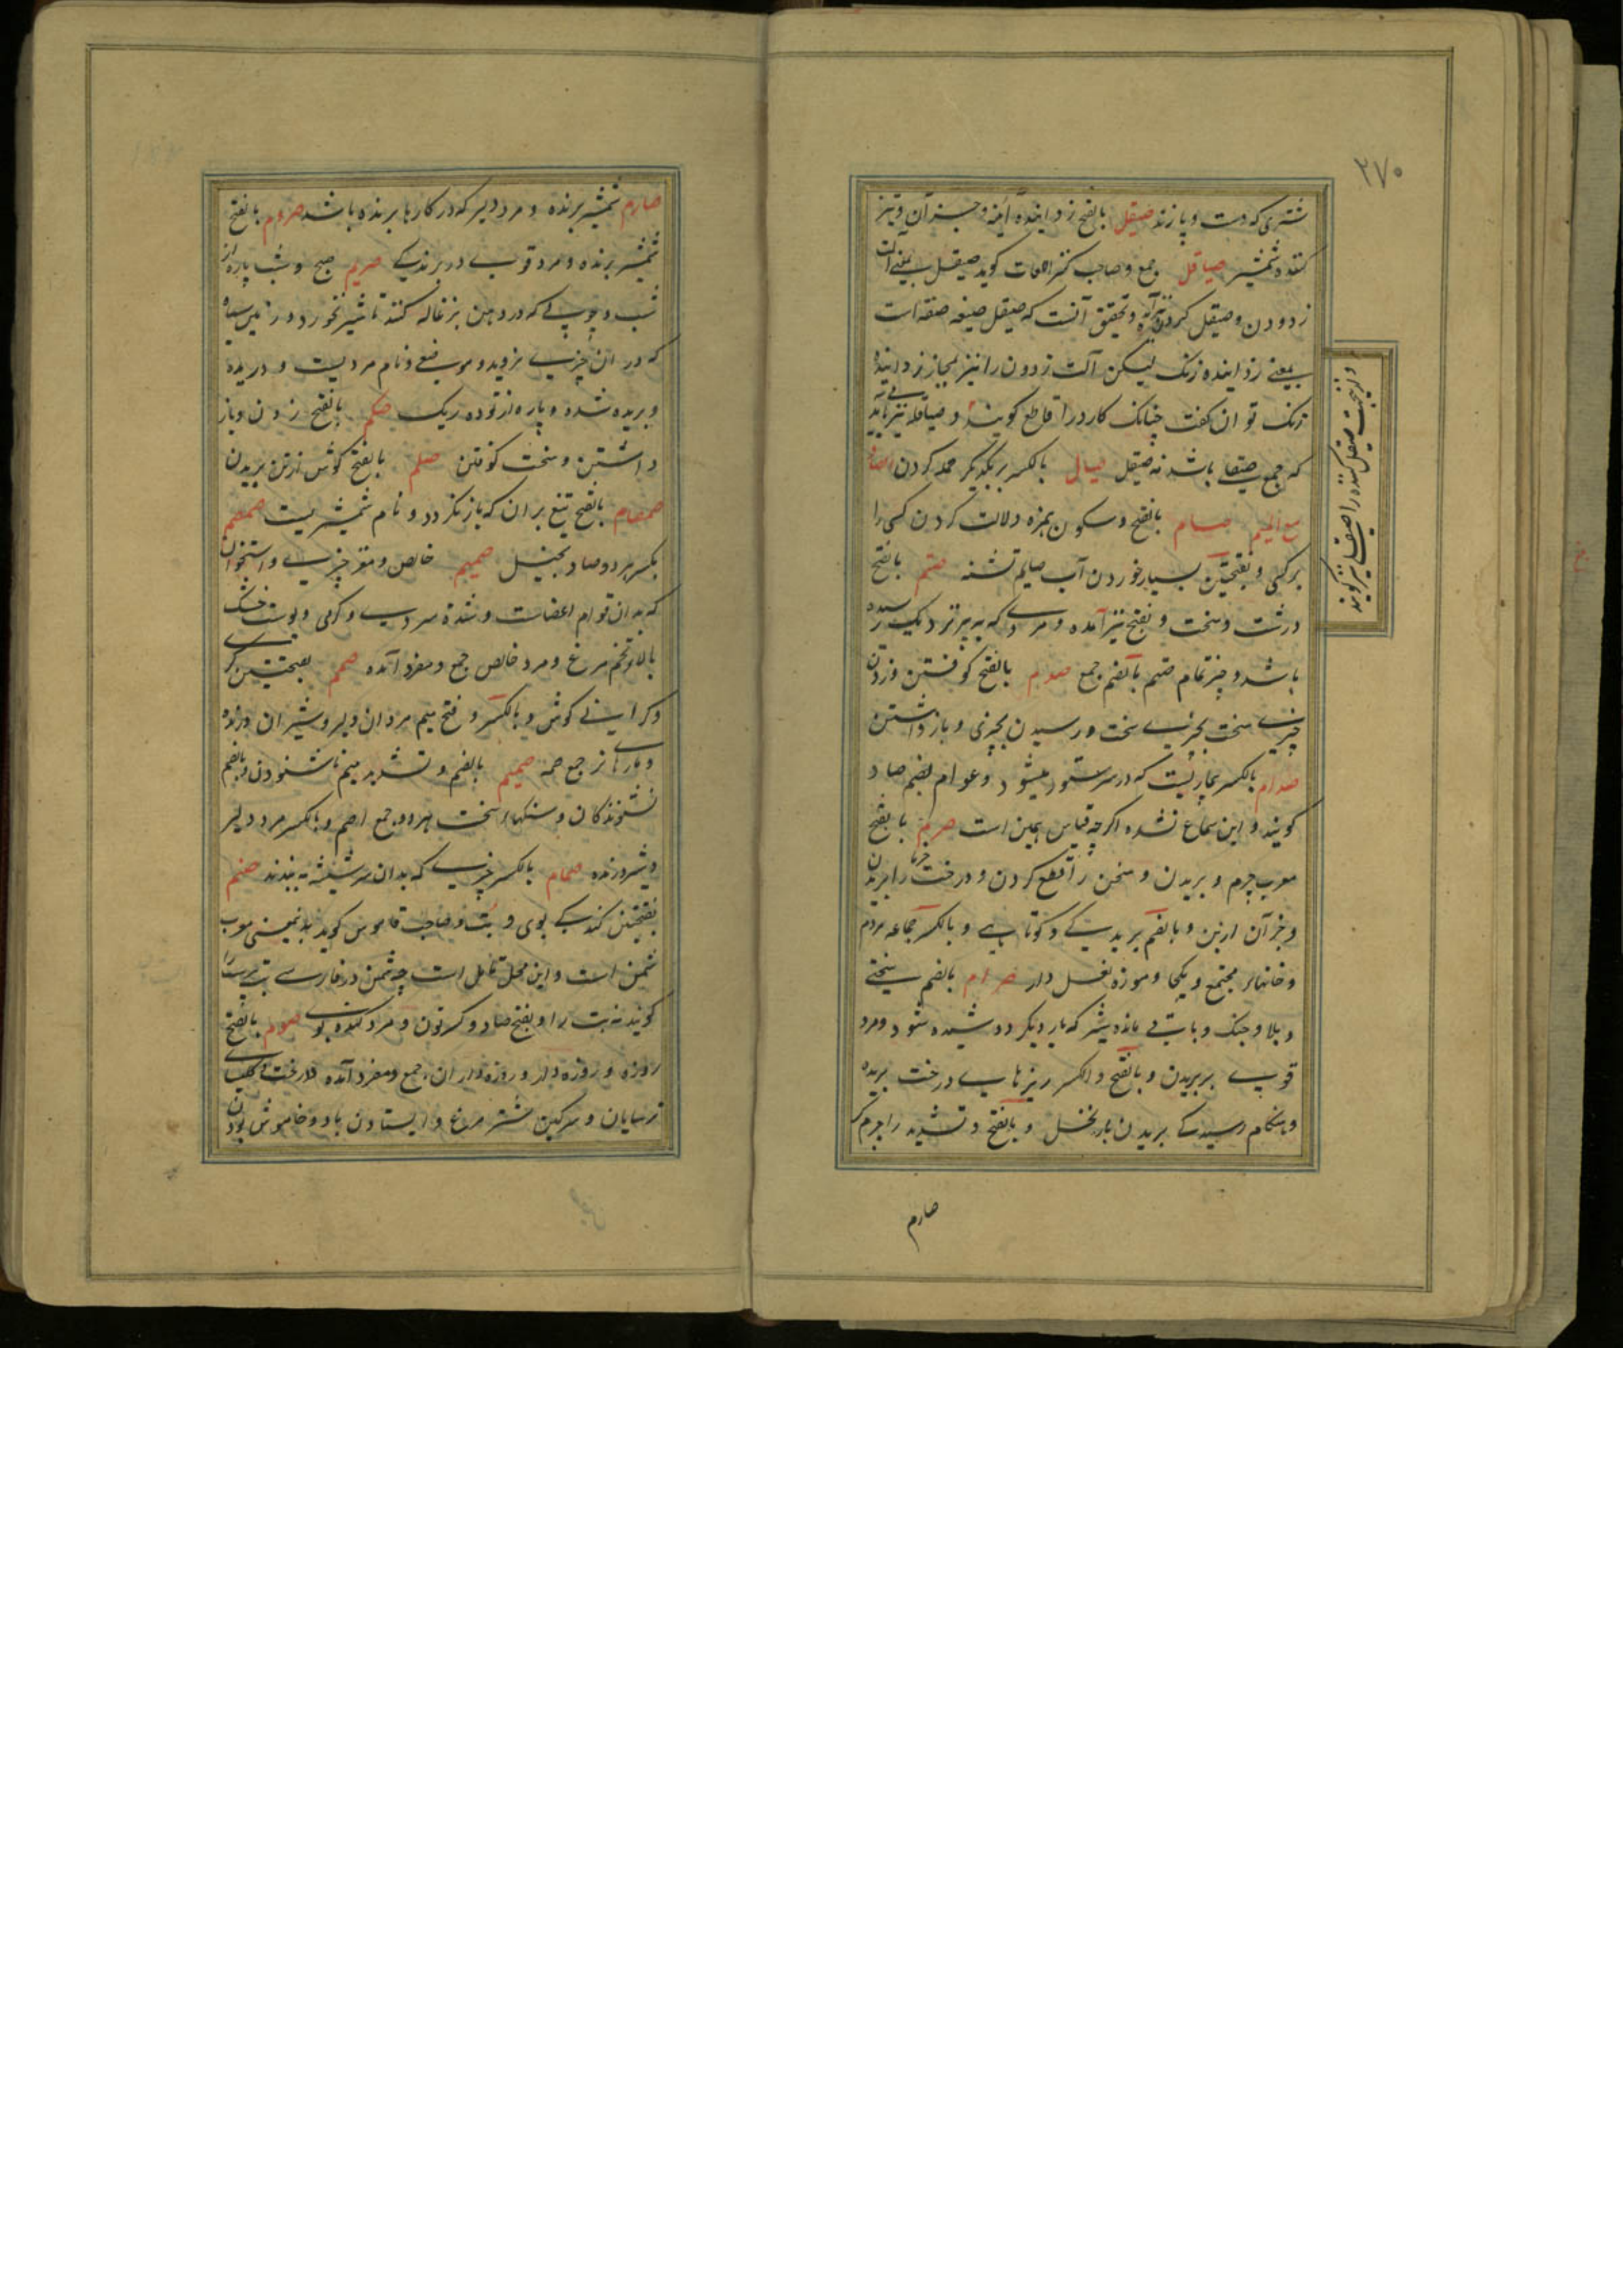 ۲۷۰
شتری که دست و پا زند صیقل بالفتح زداینده آئینه و جز آن و تیز
کننده شمشیر صیاقل جمع و صاحب کنز اللغات کوید صیقل بمعنی آلت
زدودن و صیقل کردن نیز آمده و تحقیق آنست که صیقل صیغه صفه است
بمعنی زداینده زنک لیکن آلت زدودن را نیز بمجاز زداینده
زنک توان کفت چنانک کارد را قاطع کویند و صیاقله نیز
که جمع صیقلی باشد نه صیقل صیال بالکسر بر یکدیکر حمله کردن الصاد
مع المیم صام بالفتح و سکون همزه دلالت کردن کسی را
بر کسی و بفتحتین بسیار خوردن آب صایم تشنه صتم بالفتح
درشت و سخت و بفتح نیز آمده و مردی که به پیری نزدیک رسیده
باشد و چیز تمام صتم بالضم جمع صدم بالفتح کوفتن و زدن
چیزی سخت بچیزی سخت و رسیدن بچیزی و باز داشتن
صدام بالکسر بیماریست که در سر ستور میشود و عوام بضم صاد
کویند و این سماع نشده اکرچه قیاس همین است صرم بالفتح
معرب چرم و بریدن و سخن را قطع کردن و درخت خرما را بریدن
و جز آن ازین و بالضم بریدکی و کوتاهی و بالکسر جماعه مردم
و خانهای مجتمع و یکجا و موزه نعل دار صرام بالضم سختی
و بلا و جنک و باقی مانده شیر که بار دیکر دوشیده شود و مرد
قوی بر بریدن و بالفتح و الکسر ریزهای درخت بریده
و هنکام رسیدکی بریدن بار نخل و بالفتح و تشدید را چرم کر
و ازینجهت صیقل کننده را صیقلی نیز کویند
صارم
صارم شمشیر برنده و مرد دلیر که در کارها برنده باشد صروم بالفتح
شمشیر برنده و مرد قوی در برندکی صریم صبح و شب پاره از
شب و چوبی که در دهن بزغاله کنند تا شیر نخورد و زمین سیاه
که در ان چیزی نروید و موضعی و نام مردیست و دریده
و بریده شده و پاره از توده ریک صکم بالفتح زدن و باز
داشتن و سخت کوفتن صلم بالفتح کوش از تن بریدن
صمصام بالفتح تیغ بران که باز نکردد و نام شمشیریست صمصم
بکسر هر دو صاد بخیل صمیم خالص و مغز چیزی و استخوان
که بدان قوام اعضاست و شدة سردی و کرمی و پوست خشک
بالای تخم مرغ و مرد خالص جمع و مفرد آمده صمم بفتحتین کری
و کرانی کوش و بالکسر و فتح میم مردان دلیر و شیران درنده
و مارهای نر جمع صمه صمیم بالضم و تشدید میم ناشنودن و بالضم
نشنوندکان و سنکهای سخت بهر دو جمع اصم و بالکسر مرد دلیر
و شیر درنده صمام بالکسر چیزی که بدان سر شیشه به بندند صنم
بفتحتین کندکی بوی و بت و صاحب قاموس کوید بدینمعنی معرب
شمن است و این محل تامل است چه شمن در فارسی بت پرست را
کویند نه بت را و بفتح صاد و کسر نون و مرد کنده بوی صوم بالفتح
روزه و روزه دار و روزه داران جمع و مفرد آمده و درخت و کلیسای
ترسایان و سرکین شتر مرغ و ایستادن باد و خاموش بودن